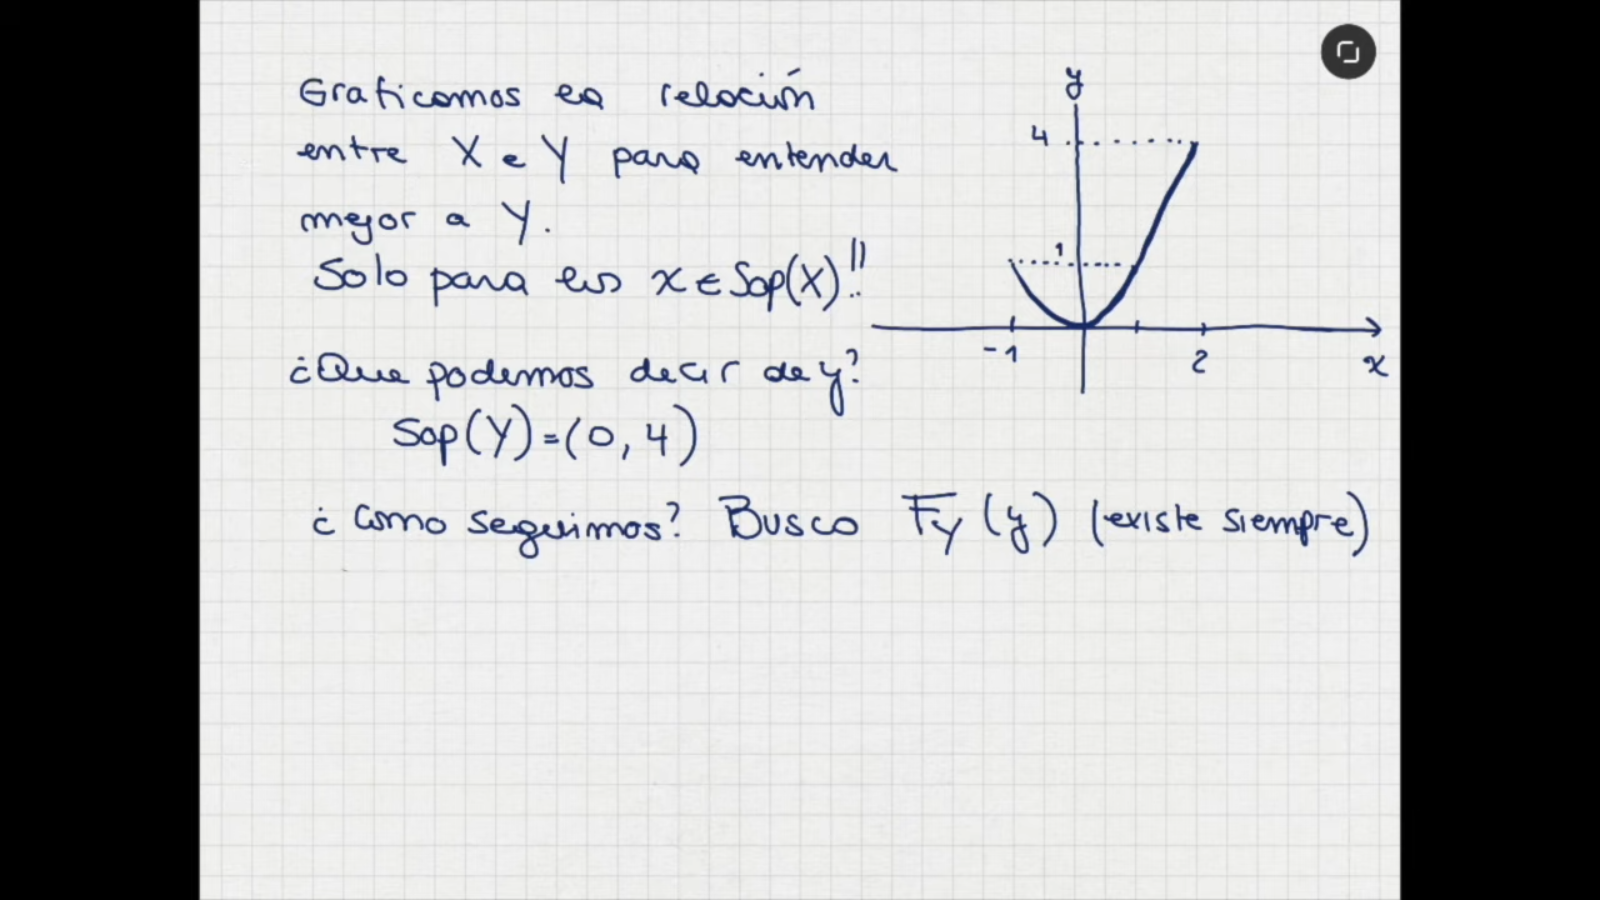 Graficamos la relación
entre X e Y para entender
mejor a Y.
Solo para los x ∈ Sop(X)!!
¿Que podemos decir de y?
Sop(Y)=(0,4)
¿como seguimos? Busco F_Y(y) (existe siempre)
y
4
1
-1
2
x